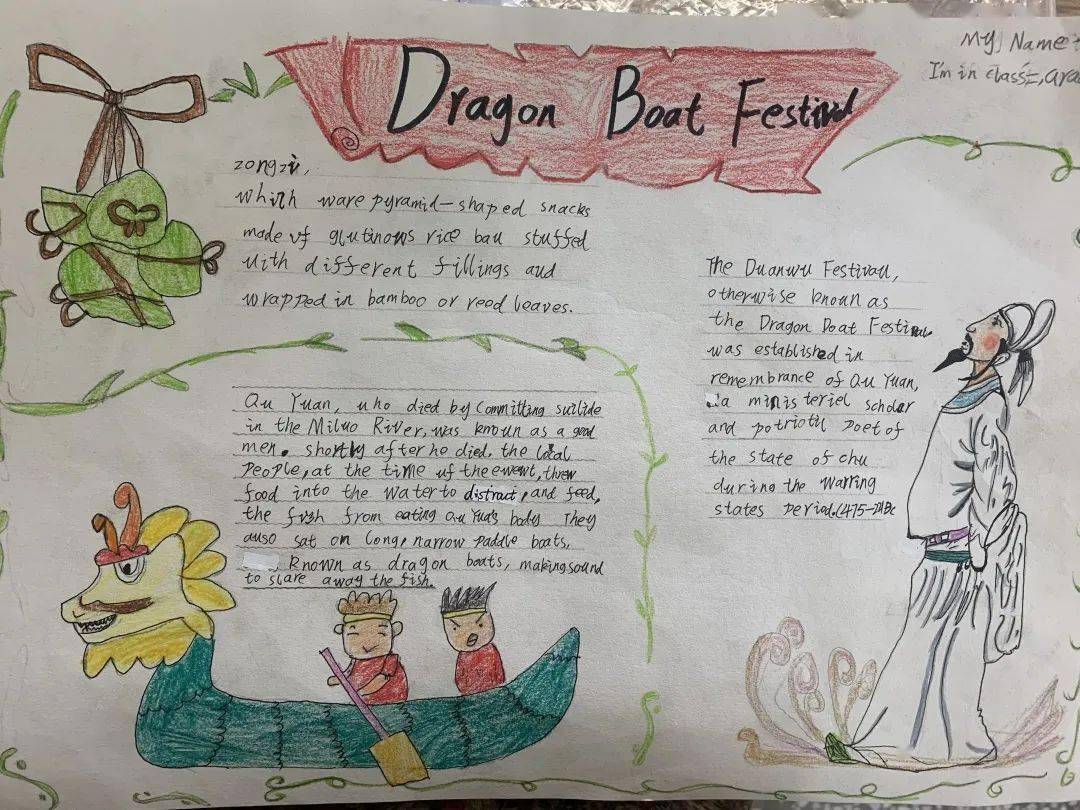 My Name
I'm in class
Dragon Boat Festival
zongzi,
which ware pyramid-shaped snacks
made of glutinous rice bau stuffed
uith different fillings and
wrapped in bamboo or reed leaves.
The Duanwu Festivau,
otherwise knoun as
the Dragon Boat Festival
was established in
remembrance of Qu Yuan,
a ministeriel scholar
and potriotic poet of
the state of chu
during the Warring
states period.(475-
Qu Yuan, who died by committing suilide
in the Miluo River, was knoun as a good
men. shortly after he died, the local
people, at the time of the event, threw
food into the water to distract, and feed,
the fish from eating Qu Yuas body They
auso sat on long, narrow paddle boats,
Known as dragon boats, making sound
to slare away the fish.